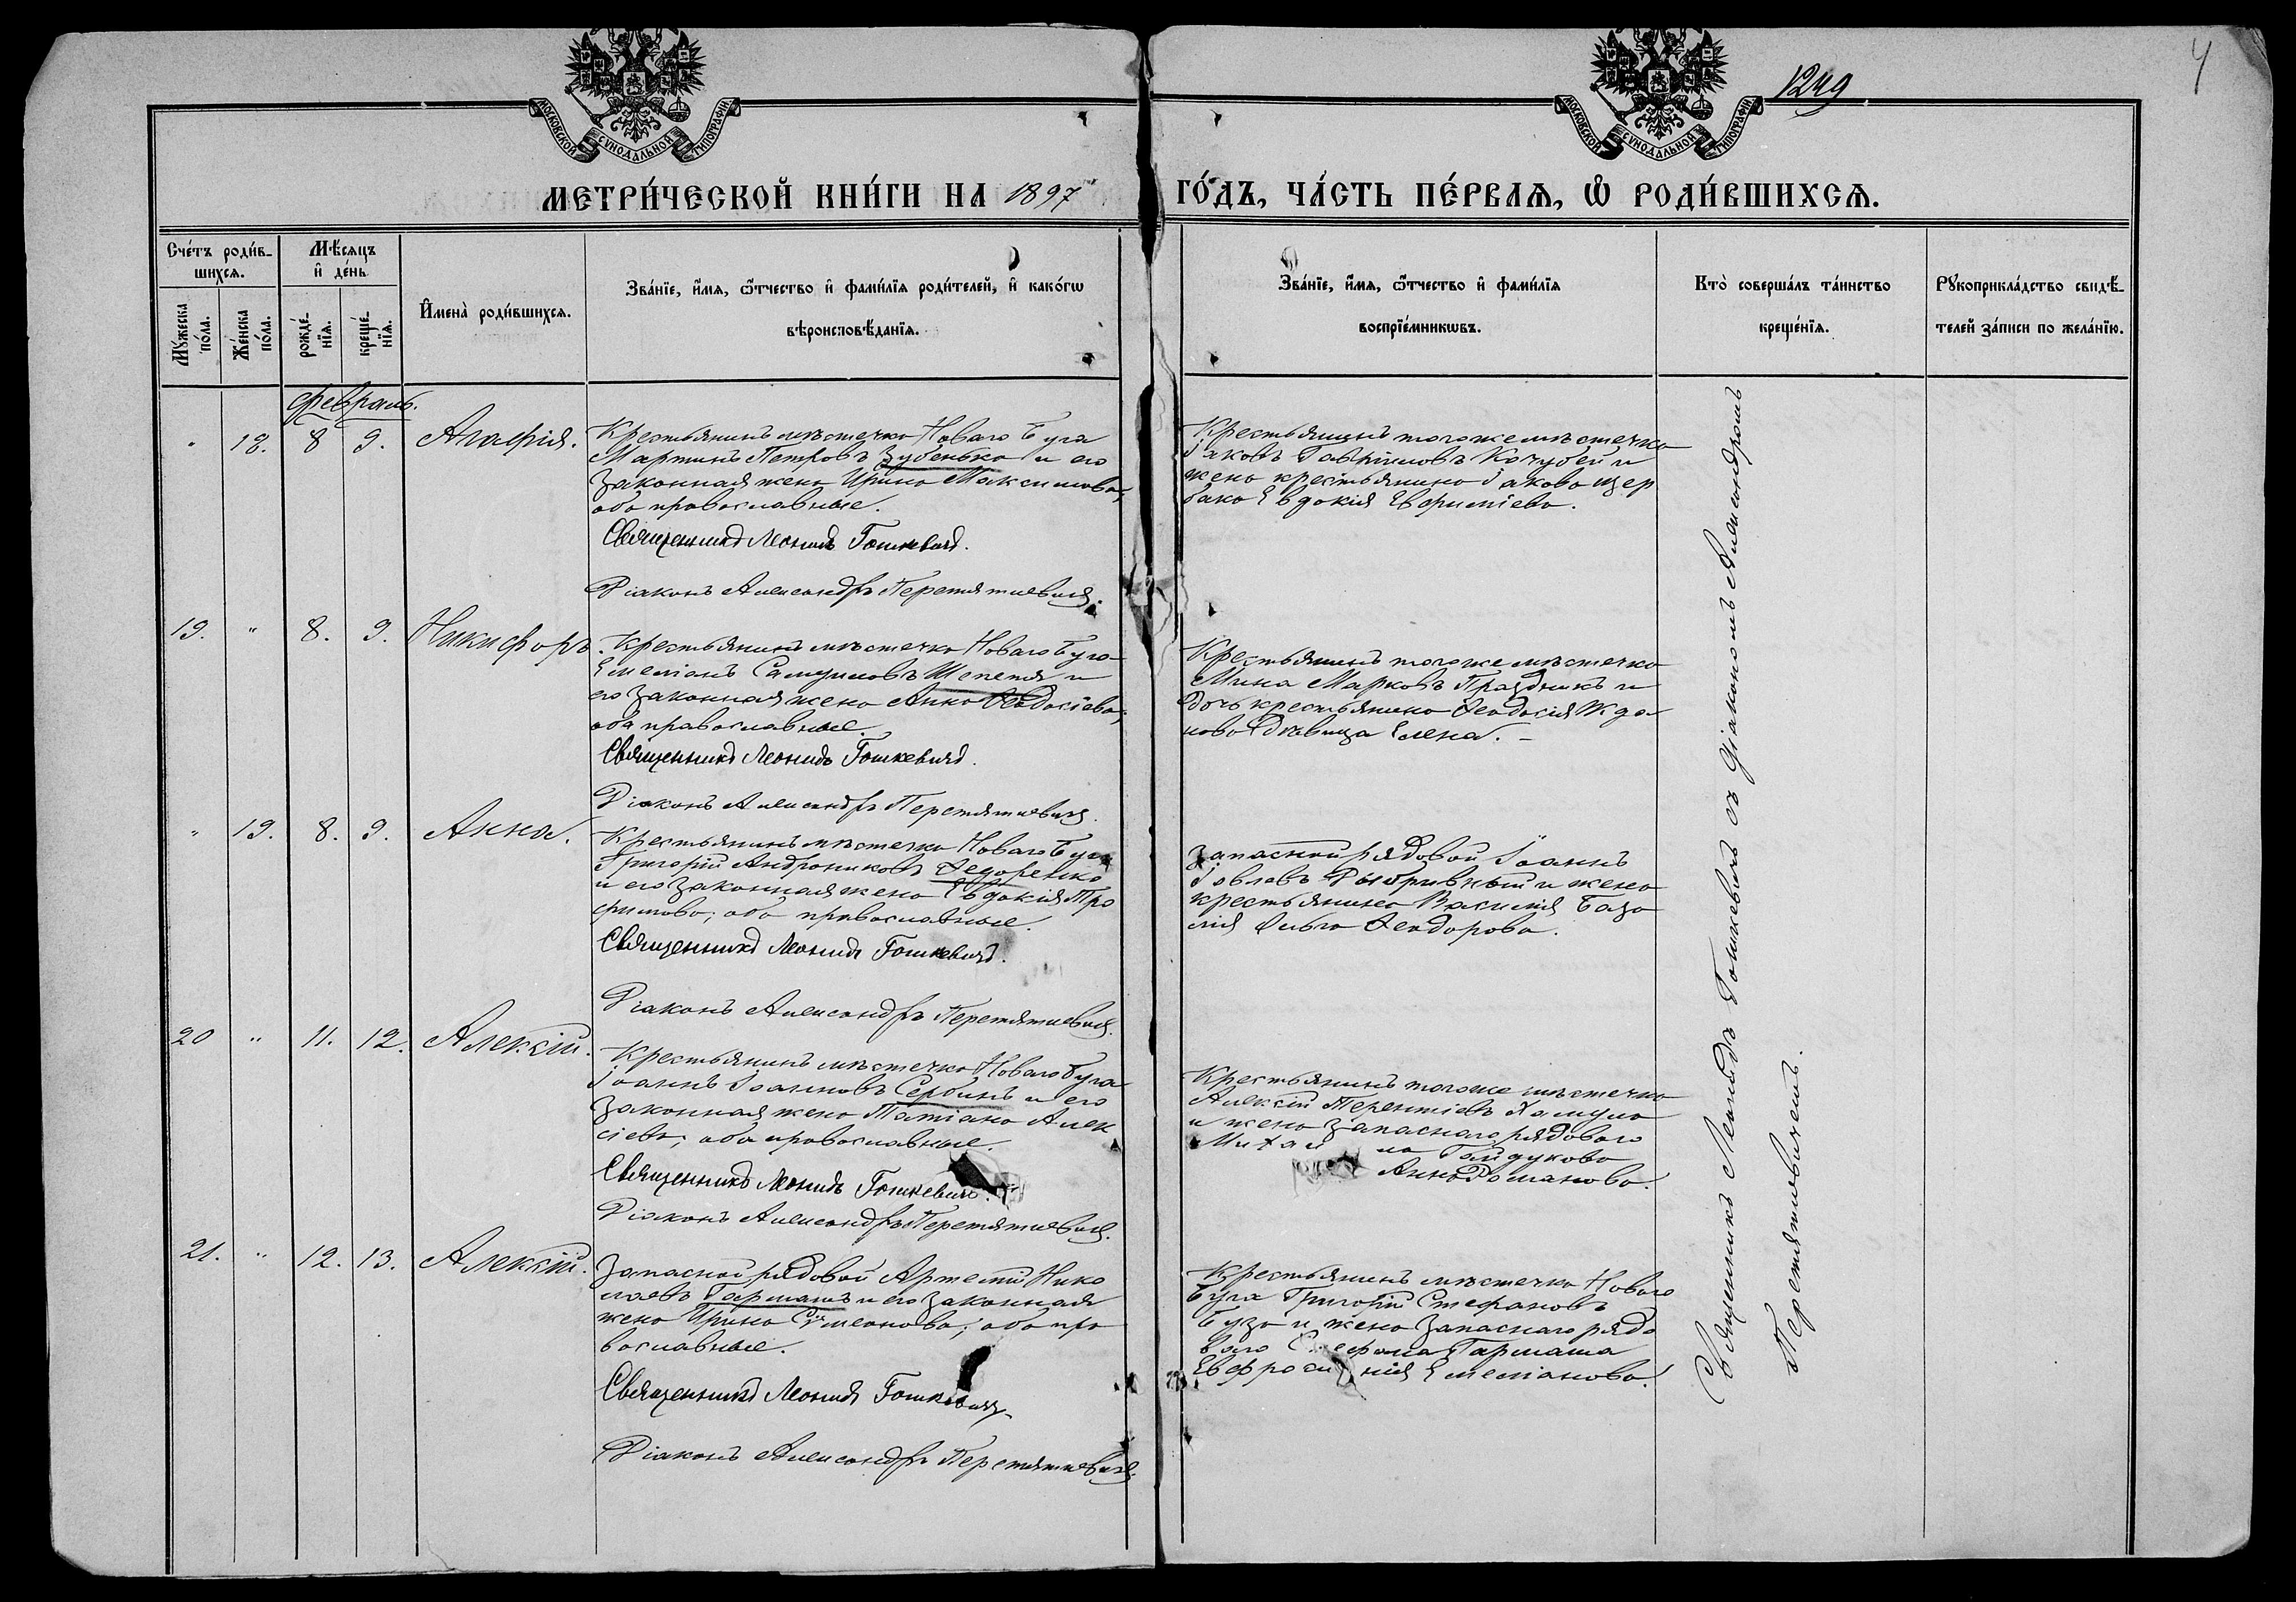 4
1249
МОСКОВСКОЙ СѴНОДАЛЬНОЙ ТИПОГРАФІИ
МОСКОВСКОЙ СѴНОДАЛЬНОЙ ТИПОГРАФІИ
МЕТРИ́ЧЕСКОЙ КНИ́ГИ НА 1897 ГО́ДЪ, ЧА́СТЬ ПЕ́РВАѦ, Ѽ РОДИ́ВШИХСѦ.
Счéтъ роди́в-
шихсѧ.
Мꙋ́жеска
по́ла.
Же́нска
по́ла.
Мѣ́сѧцъ
и҆ де́нь
рожде́-
нїѧ.
креще́-
нїѧ.
И҆мена̀ роди́вшихсѧ.
Зва́нїе, и҆́мѧ, ѻ҆́тчество и҆ фами́лїѧ роди́телей, и҆ како́гѡ
вѣроисповѣ́данїѧ.
Зва́нїе, и҆́мѧ, ѻ҆́тчество и҆ фами́лїѧ
воспрїе́мникѡвъ.
Кто̀ соверша́лъ та́инство
креще́нїѧ.
Рꙋкоприкла́дство свидѣ́-
телей за́писи по жела́нїю.
Февраль.
" 18. 8 9. Агафія.
Крестьянинъ мѣстечка Новаго Буга
Мартинъ Петровъ Зубенько и его
законная жена Ирина Максимова,
оба православные.
Священникъ Леонидъ Гошкевичъ.
Діаконъ Александръ Перетяткевичъ.
Крестьянинъ того же мѣстечка
Іаковъ Гавріиловъ Кочубей и
жена крестьянина Іакова Щер
бака Евдокія Евфиміева.
19. " 8. 9. Никифоръ.
Крестьянинъ мѣстечка Новаго Буга
Емеліанъ Самуиловъ Шепетя и
его законная жена Анна Ѳеодосіева,
оба православные.
Священникъ Леонидъ Гошкевичъ.
Діаконъ Александръ Перетяткевичъ.
Крестьянинъ того же мѣстечка
Мина Марковъ Праздникъ и
дочь крестьянина Ѳеодосія Жда
нова дѣвица Елена. –
" 19. 8. 9. Анна.
Крестьянинъ мѣстечка Новаго Буга
Григорій Андрониковъ Ѳедоренко
и его законная жена Евдокія Тро
фимова; оба православные.
Священникъ Леонидъ Гошкевичъ.
Діаконъ Александръ Перетяткевичъ.
Запасной рядовой Іоаннъ
Іовлевъ и жена
крестьянина Василія База
лія Ольга Ѳеодорова.
20 " 11. 12. Алексій.
Крестьянинъ мѣстечка Новаго Буга
Іоаннъ Іоанновъ Сербинъ и его
законная жена Татіана Алек
сіева; оба православные.
Священникъ Леонидъ Гошкевичъ.
Діаконъ Александръ Перетяткевичъ.
Крестьянинъ того же мѣстечка
Алексій Терентіевъ Хамула
и жена запаснаго рядоваго
Михаила Гайдукова
Анна Романова.
21. " 12. 13. Алексій.
Запасной рядовой Артемій Нико
лаевъ Гармашъ и его законная
жена Ирина Сѵмеонова; оба пра
вославные.
Священникъ Леонидъ Гошкевичъ
Діаконъ Александръ Перетяткевичъ.
Крестьянинъ мѣстечка Новаго
Буга Григорій Стефановъ
Буза и жена запаснаго рядо
ваго Стефана Гармаша
Евфросинія Емеліанова.
Священникъ Леонидъ Гошкевичъ съ діакономъ Александромъ
Перетяткевичемъ.